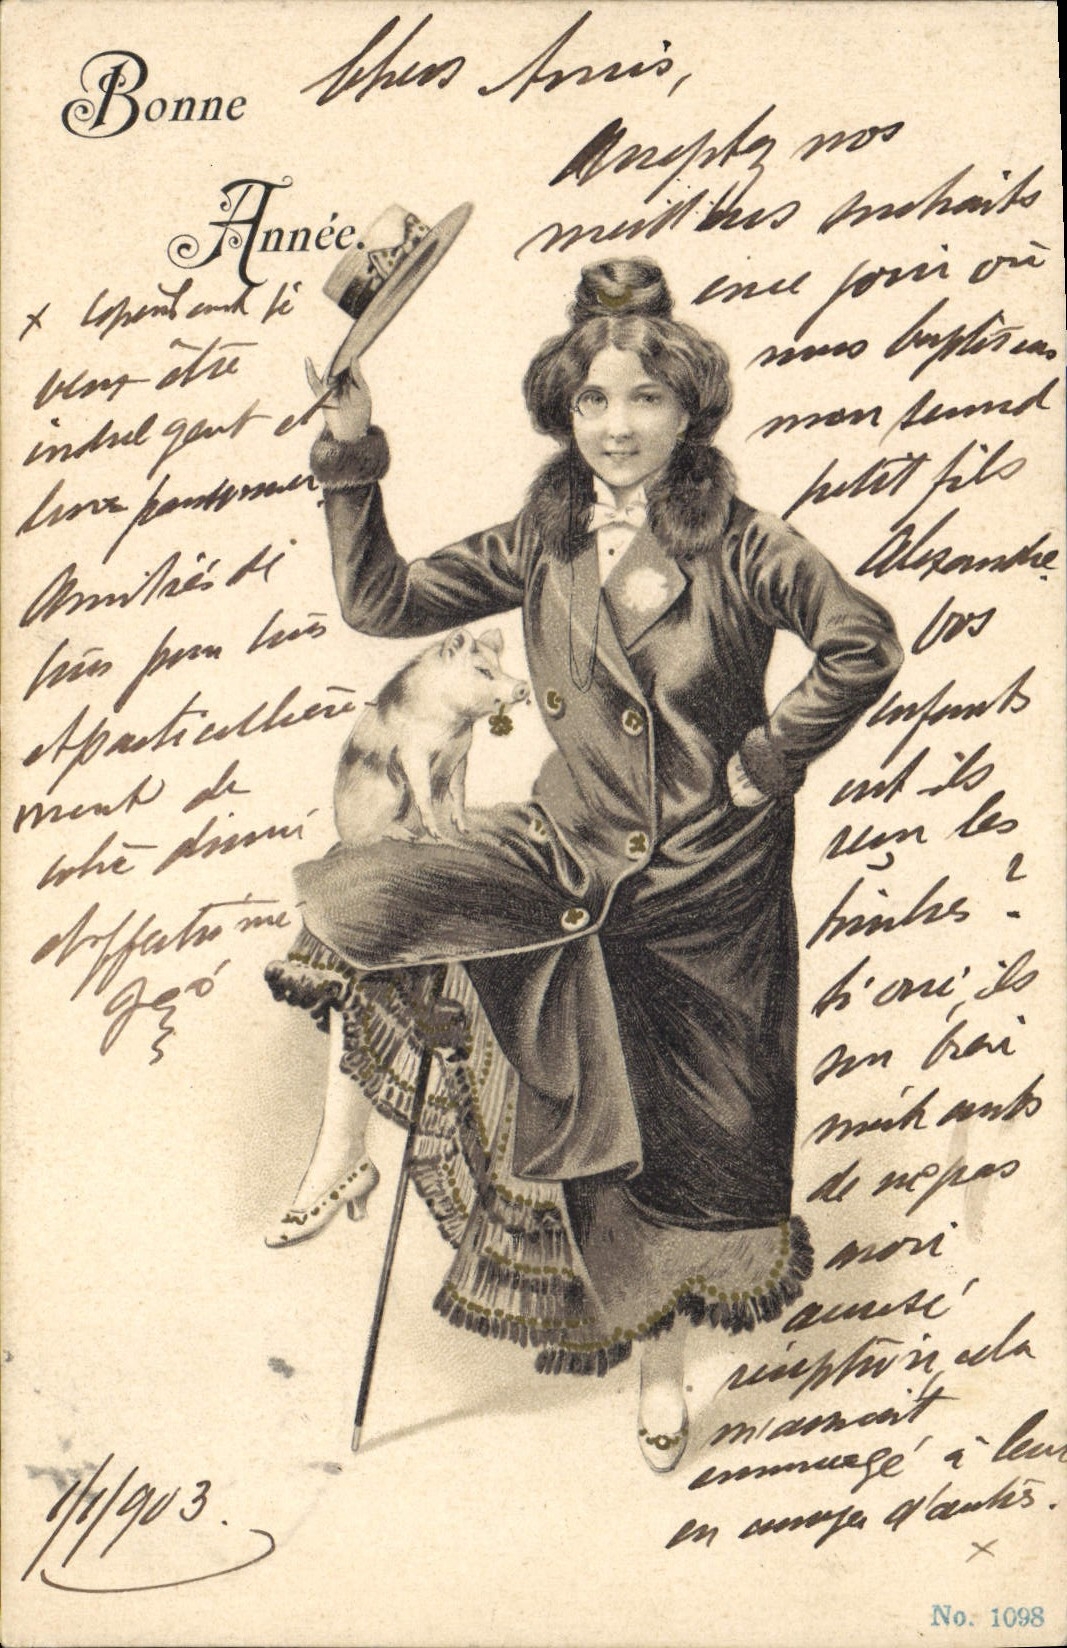 Bonne
Année.
Chers Amis,
Acceptez nos
meilleurs souhaits
en ce jour où
nous baptisons
mon second
petit fils
Alexandre.
Vos
enfants
ont-ils
reçu les
timbres ?
Si oui, ils
sont bien
méchants
de ne pas
avoir
accusé
réception, cela
m'aurait
encouragé à leur
en envoyer d'autres.
x
x Cependant je
veux être
indulgent et
leur pardonner.
Amitiés de
tous pour tous
et particulière-
ment de
votre
affectionné
1/1/903.
No. 1098